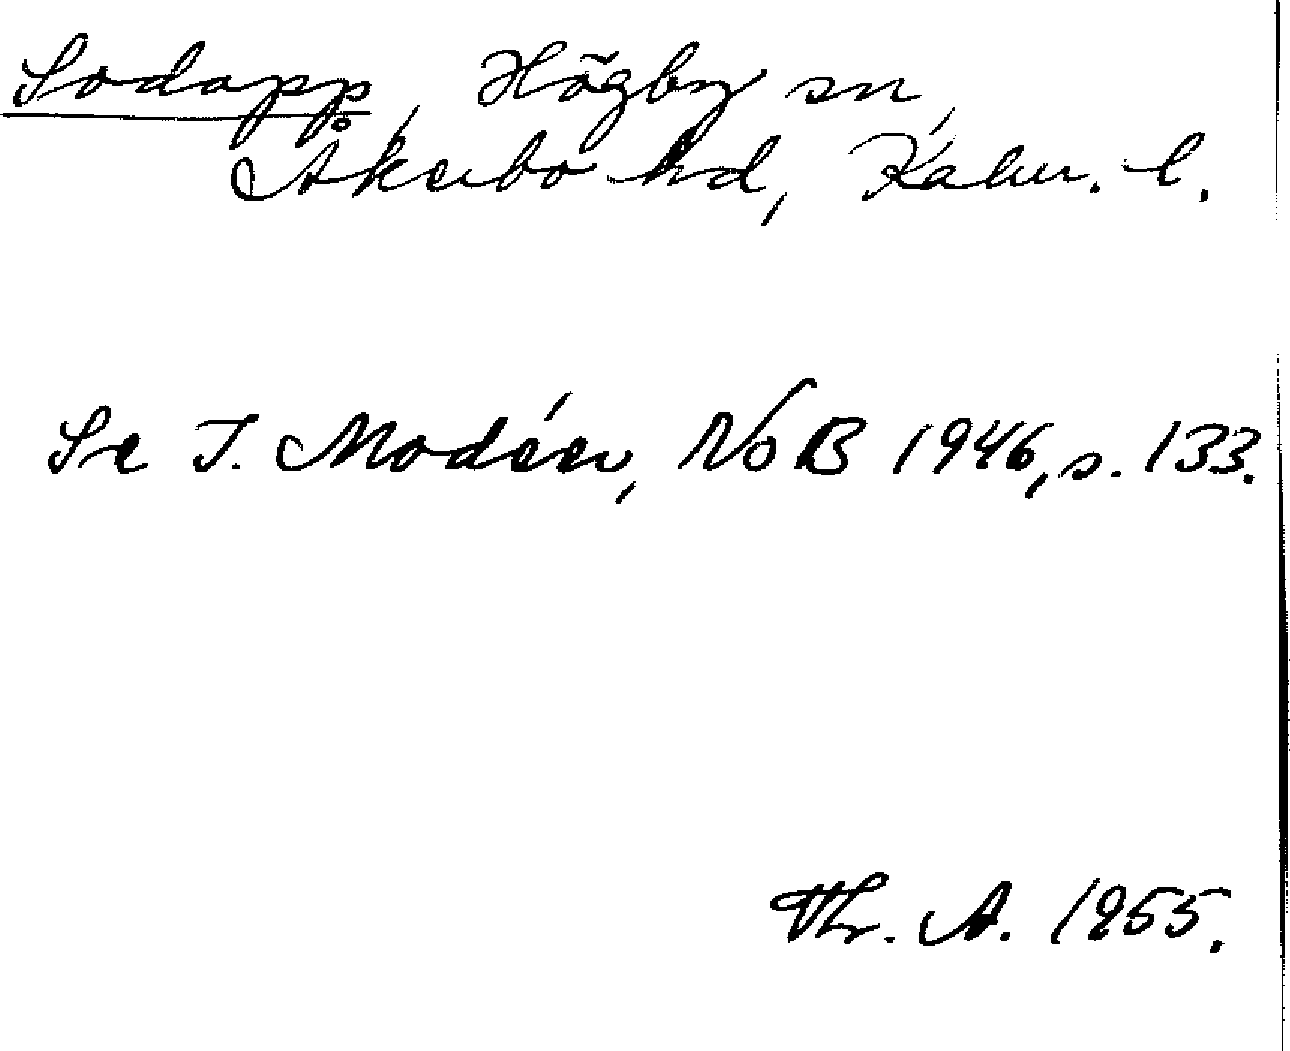 Sodapp, Högby sn,
Åkerbo hd, Kalm. l.
Se I. Modéer, NoB 1946, s. 133.
Th. A. 1955.